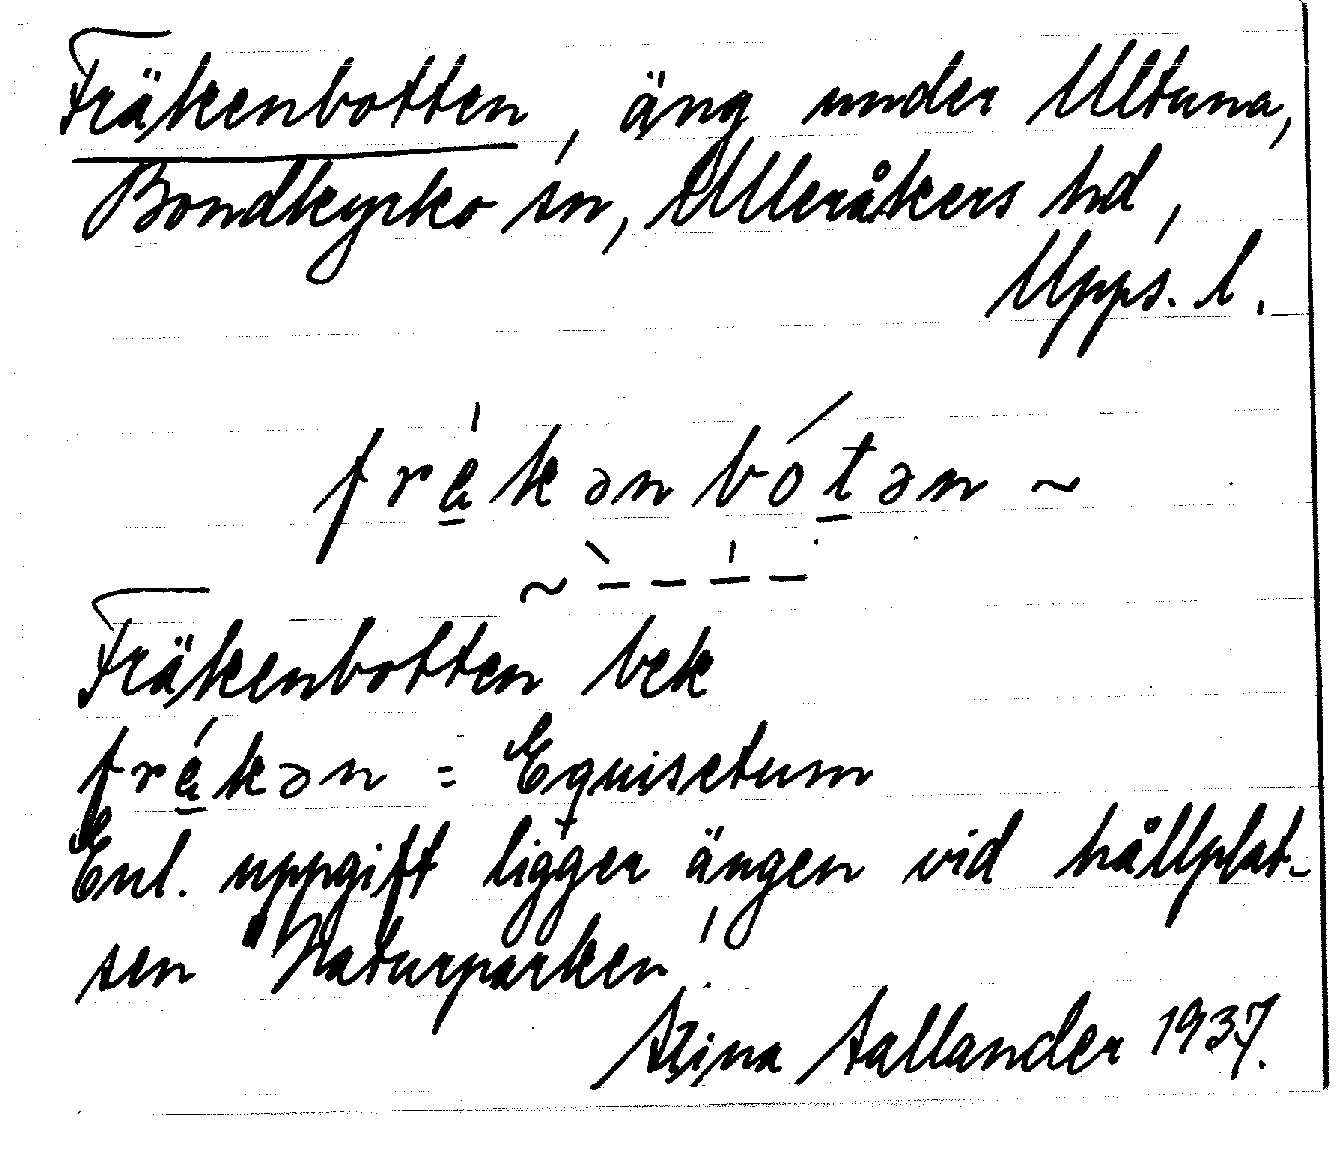 Fräkenbotten, äng under Ultuna,
Bondkyrko sn, Ulleråkers hd,
Upps. l.
frä́kən bót̲ən ~
~ ˋ– – –́ –
Fräkenbotten bek
frä́kən = Equisetum
Enl. uppgift ligger ängen vid hållplat-
sen "Naturparken!
Stina Sallander 1937.